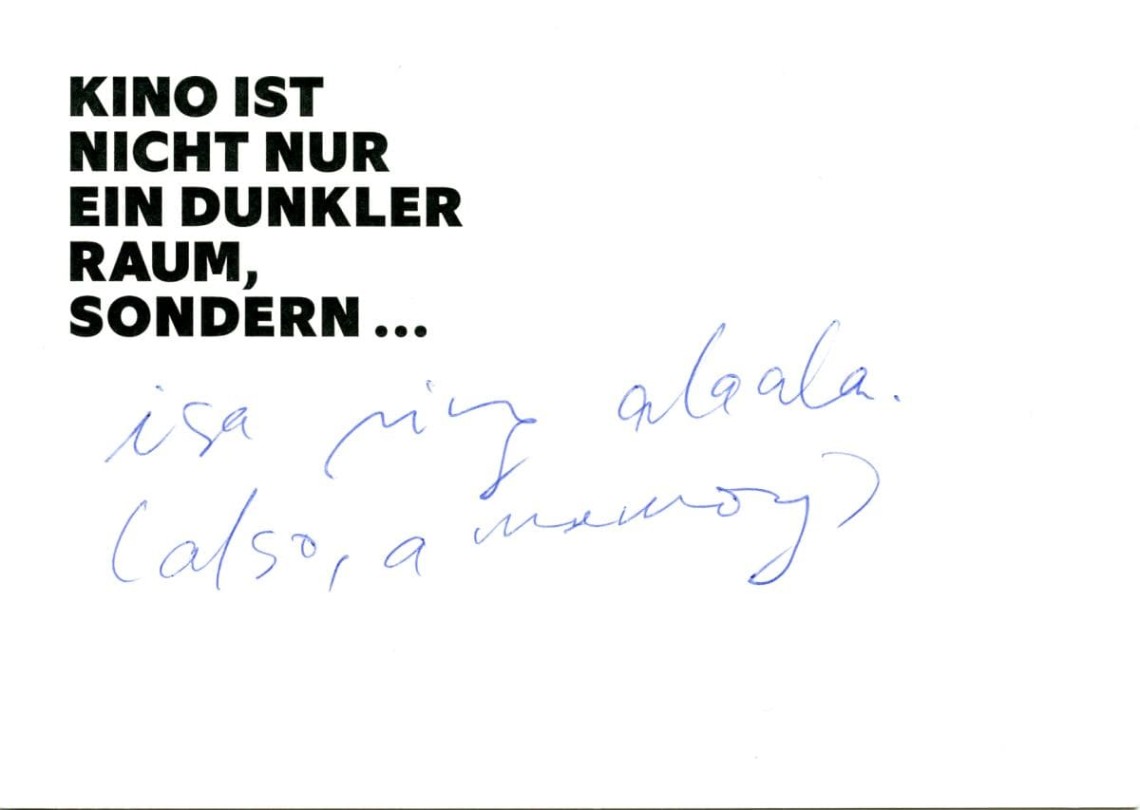 KINO IST
NICHT NUR
EIN DUNKLER
RAUM,
SONDERN ...
isa ring alaala.
(also, a memory)